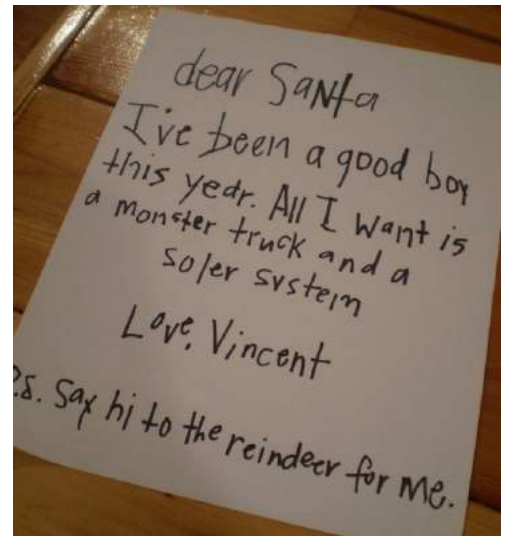 dear Santa
I've been a good boy
this year. All I want is
a monster truck and a
soler system
Love, Vincent
P.S. Say hi to the reindeer for me.